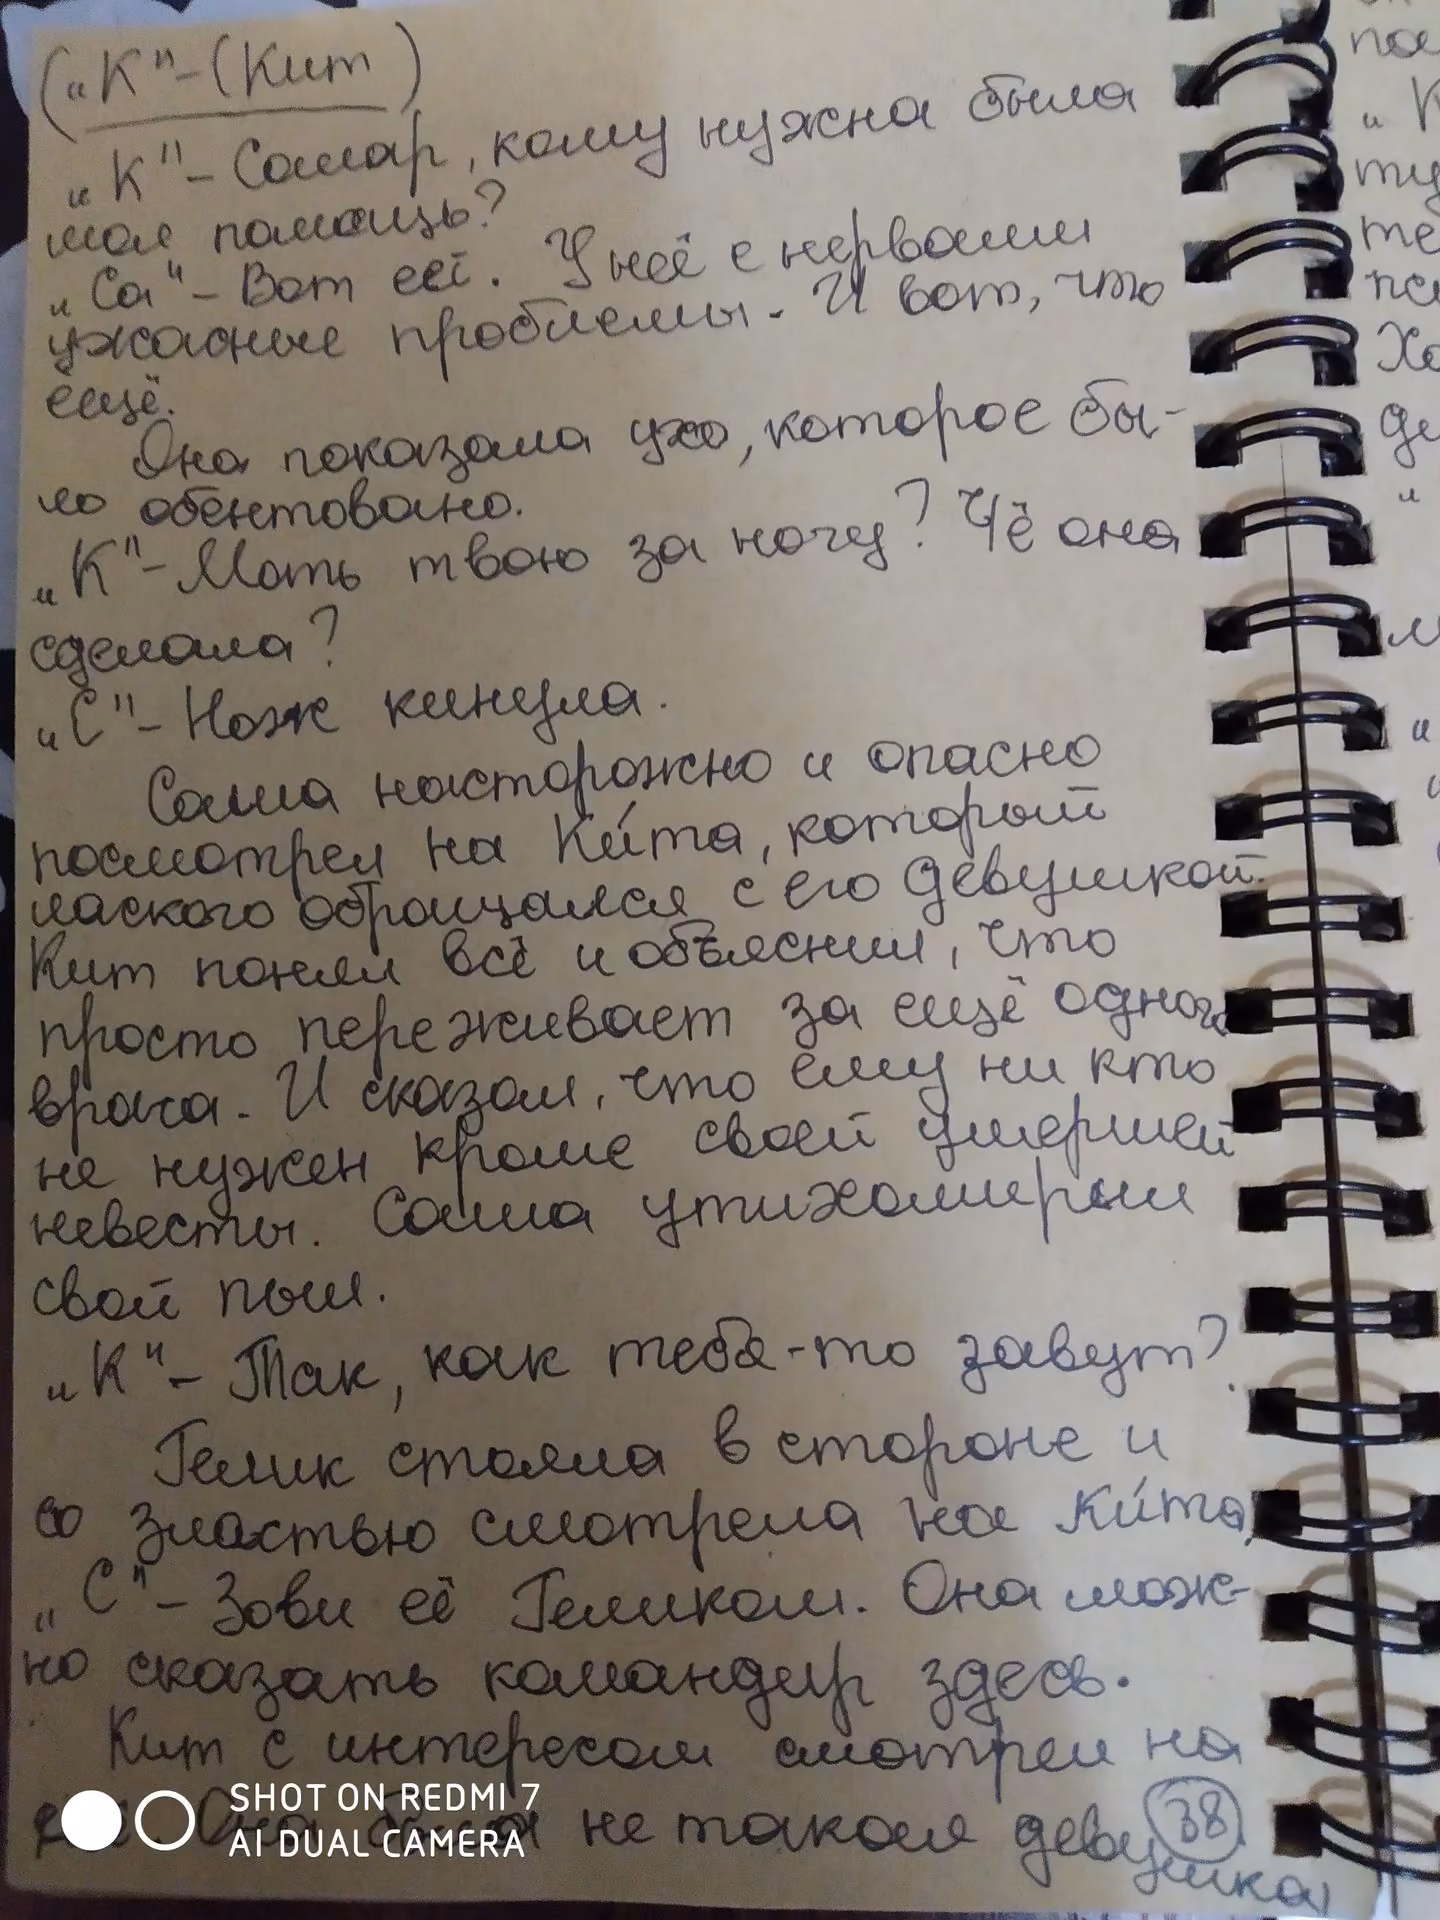 („К"-(Кит)
„К"- Самар, кому нужна была
моя помощь?
„Са"- Вот ей. У неё с нервами
ужасные проблемы. И вот, что
ещё.
Она показала ухо, которое бы-
ло обентовано.
„К"- Мать твою за ногу? Чё она
сделала?
„С"- Нож кинула.
Саша насторожно и опасно
посмотрел на Ки́та, который
лаского обращался с его девушкой.
Кит понял всё и объяснил, что
просто переживает за ещё одного
врача. И сказал, что ему ни кто
не нужен кроме своей умершей
невесты. Саша утихомирил
свой пыл.
„К"- Так, как тебя-то завут?
Гелик стояла в стороне и
со злостью смотрела на Ки́та,
„С"- Зови её Геликом. Она мож-
но сказать командир здесь.
Кит с интересом смотрел на
Она была не такая девушка,
38
SHOT ON REDMI 7
AI DUAL CAMERA